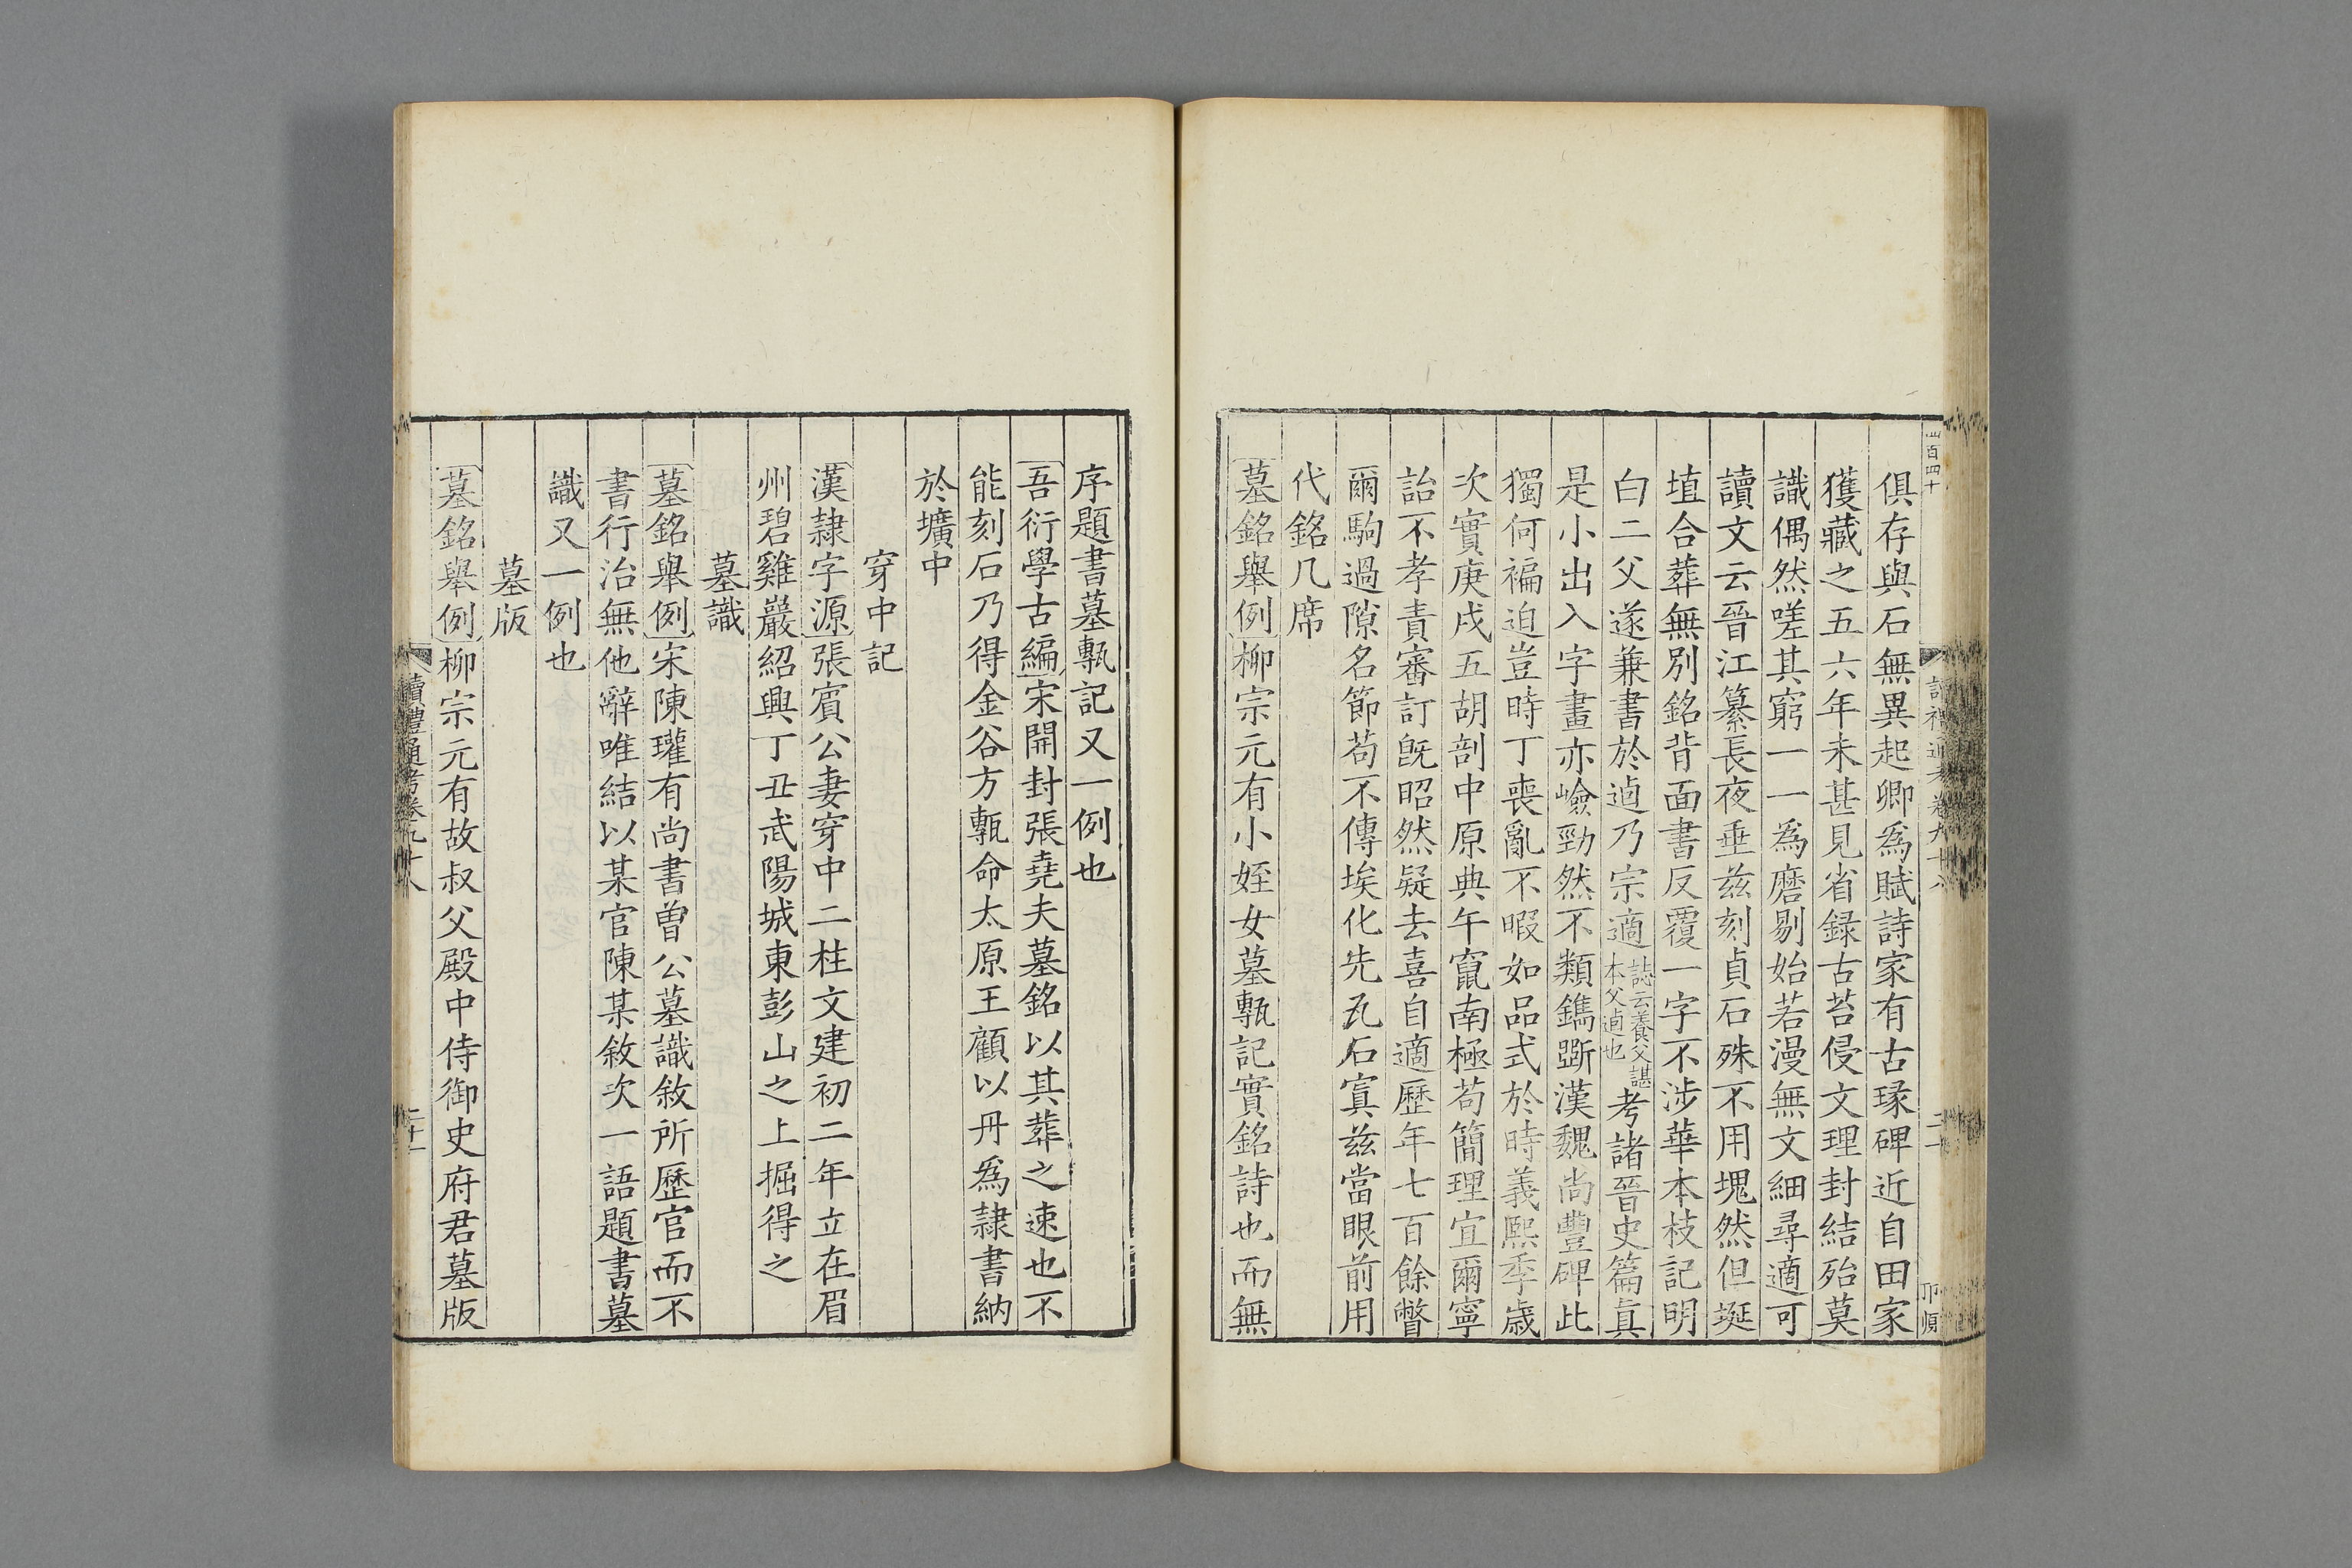 俱存與石無異起卿為賦詩家有古瑑碑近自田家
獲藏之五六年未甚見省録古苔侵文理封結殆莫
識偶然嗟其窮一一為磨剔始若漫無文細尋適可
讀文云晉江纂長夜垂兹刻貞石殊不用塊然但埏
埴合葬無別銘背面書反覆一字不涉華本枝記明
白二父遂兼書於逌乃宗適誌云養父諶本父逌也考諸晉史篇真
是小出入字畫亦嶮勁然不類鐫斵漢魏尚豐碑此
獨何褊迫豈時丁喪亂不暇如品式於時義熙季歳
次實庚戌五胡剖中原典午竄南極苟簡理宜爾寧
詒不孝責審訂旣昭然疑去喜自適歷年七百餘瞥
爾駒過隙名節苟不傳埃化先瓦石寘兹當眼前用
代銘几席
墓銘舉例柳宗元有小姪女墓甎記實銘詩也而無
序題書墓甎記又一例也
吾衍學古編宋開封張堯夫墓銘以其葬之速也不
能刻石乃得金谷方甎命太原王顧以丹為隷書納
於壙中
穿中記
漢隷字源張賓公妻穿中二柱文建初二年立在眉
州碧雞巖紹興丁丑武陽城東彭山之上掘得之
墓識
墓銘舉例宋陳瓘有尚書曾公墓識敘所歷官而不
書行治無他辭唯結以某官陳某敘次一語題書墓
識又一例也
墓版
墓銘舉例柳宗元有故叔父殿中侍御史府君墓版
讀禮通考卷九十八